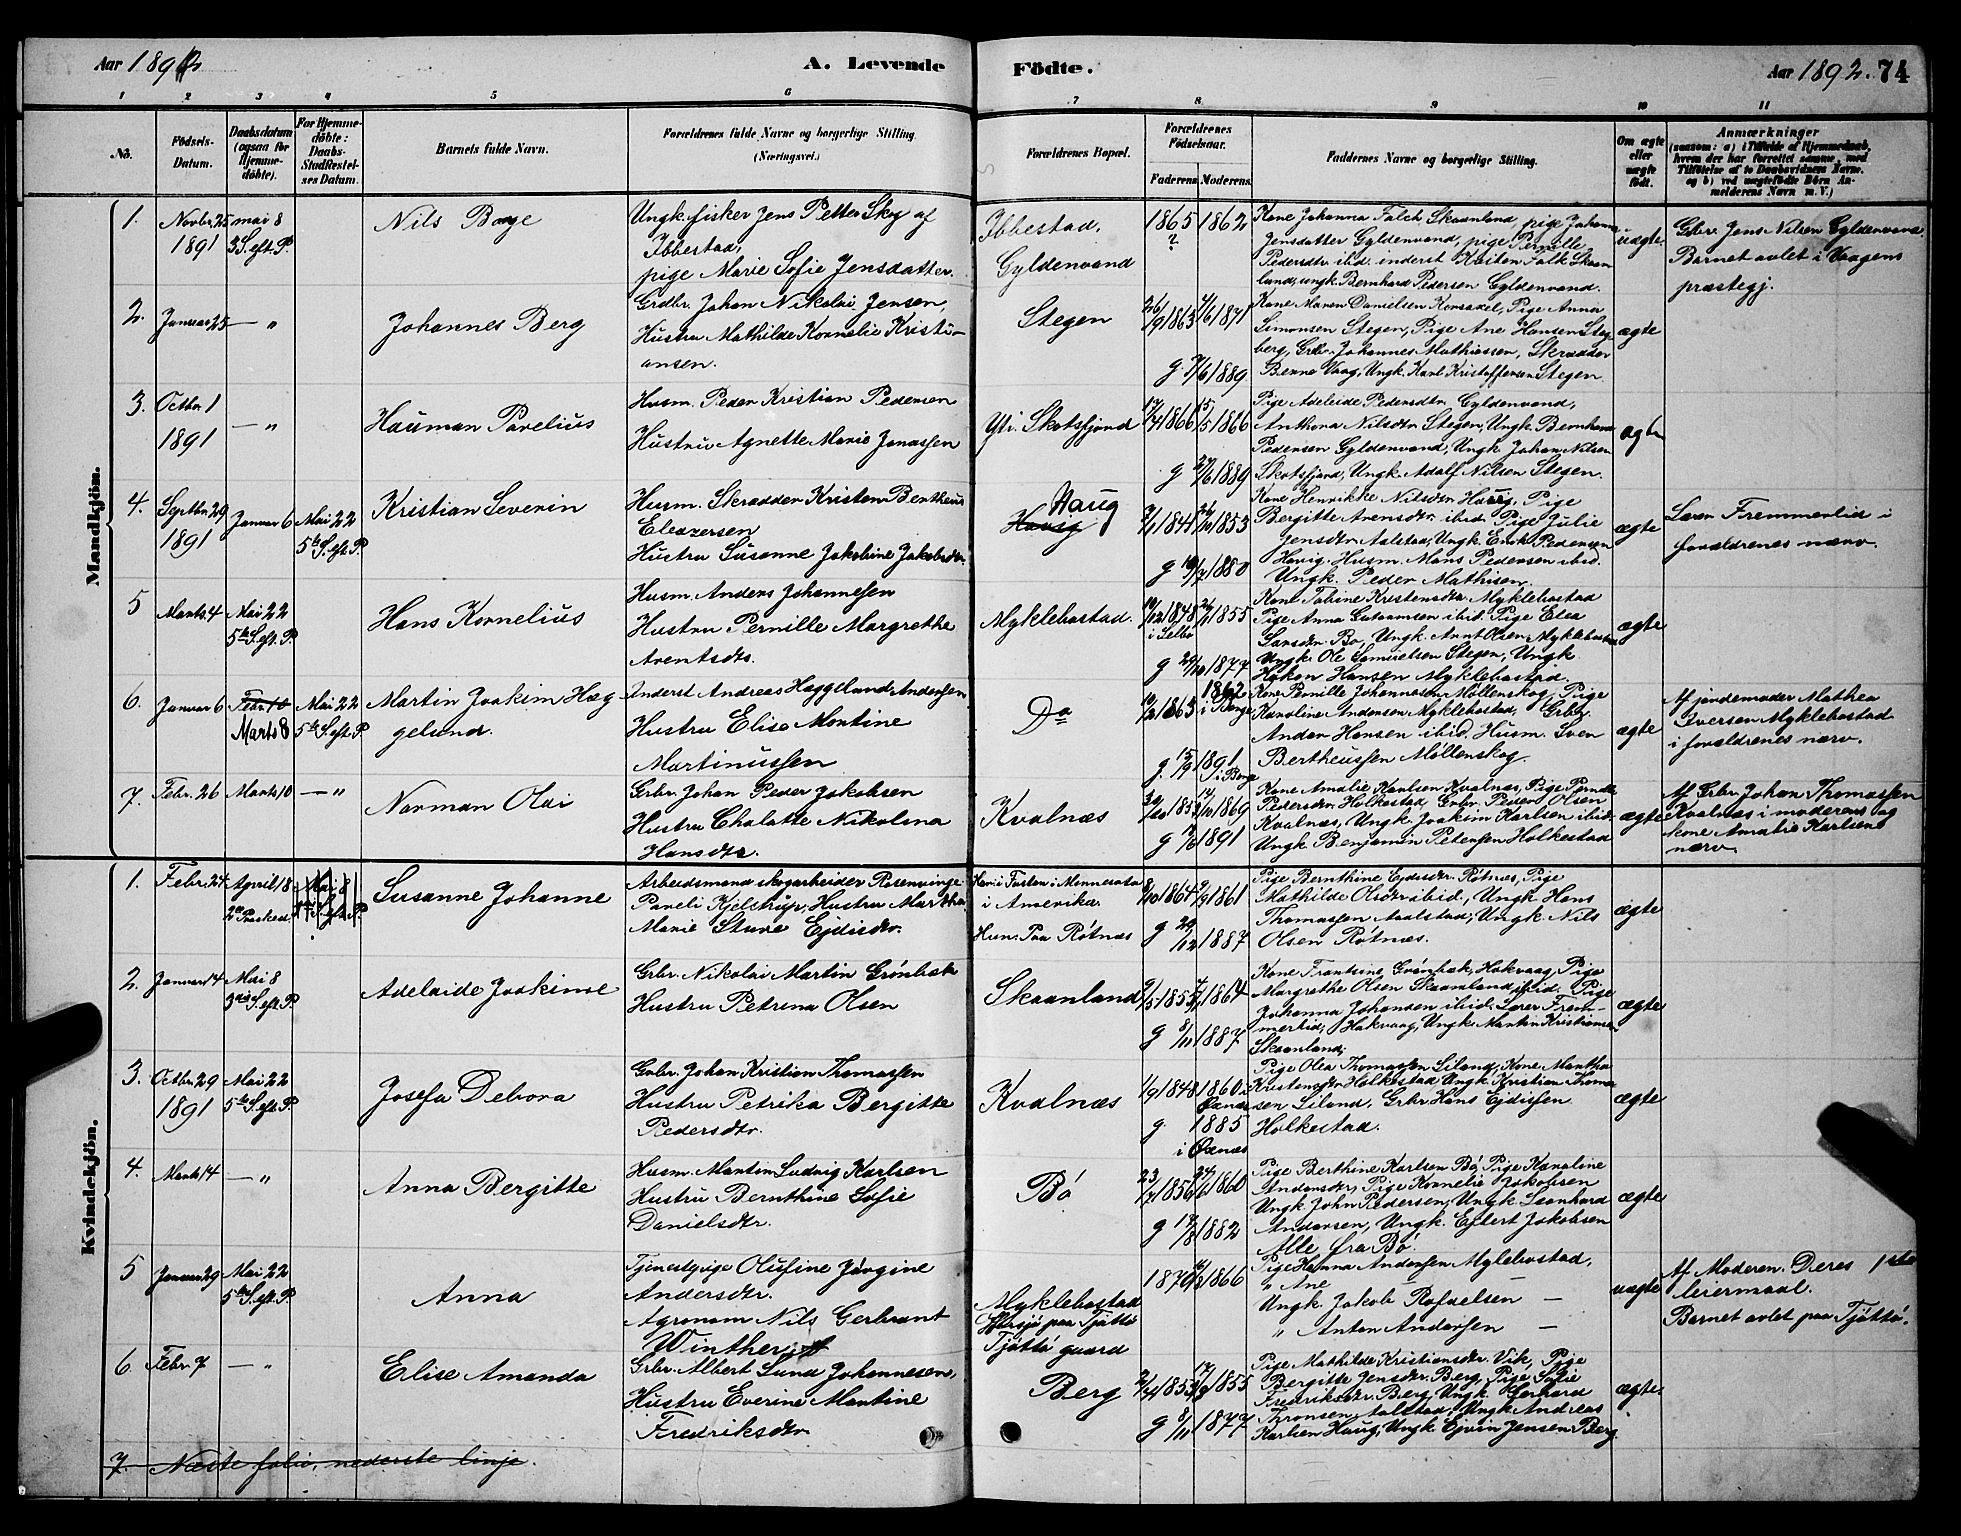 Aar 1892
A. Levende
Födte.
Aar 1892. 74
1 2 3 4 5 6 7 8 9 10 11
No.
Födsels-Datum.
Daabsdatum (ogsaa for Hjemme-döbte).
For Hjemme-döbte: Daabs-Stadfæstel-ses Datum.
Barnets fulde Navn.
Forældrenes fulde Navne og borgerlige Stilling. (Næringsvei.)
Forældrenes Bopæl.
Forældrenes Födselsaar.
Faderens Moderens
Faddernes Navne og borgerlige Stilling.
Om ægte eller uægte födt.
Anmærkninger
(saasom: a) i Tilfælde af Hjemmedaab, hvem der har forrettet samme, med Tilföielse af to Daabsvidners Navne. og b) ved uægtefödte Börn An-melderens Navn m. V.)
Mandkjön.
1. Novbr. 25 1891
mai 8 3 S. eft. P.
Nils Bage
Ungk. fisker Jens Petter Skog af
Ibbestad,
pige Marie Sofie Jensdatter.
Ibbestad,
Gyldenvand
1865 ? 1862
Kone Johanna Falch Skaanland, pige Johanna
Jensdatter Gyldenvand, pige Pernille
Pedersdtr ibid. inderst Kristen Falk Skaan
land, ungk. Bernhard Pedersen Gyldenvand.
uægte
Grbr. Jens Nilsen Gyldenvand
Barnet avlet i Vaagens
præstegj.
2. Januar 25 — "
Johannes Berg
Grdbr. Johan Nikolai Jensen,
Hustru Mathilde Kornelie Kristi-
ansen.
Stegen
26/9 1863 4/6 1871
g 7/6 1889
Kone Maren Danielsen Korsakel, Pige Anna
Simonsen Stegen, Pige Ane Hansen Steg
berg, Grbr. Johannes Mathiassen, Skrædder
Benne Vaag, Ungk. Karl Kristoffersen Stegen.
ægte
3. Octbr. 1 1891 — "
Hauman Parelius
Husm. Peder Kristian Pedersen
Hustru Agnette Marie Jonassen
Ytr. Skotsfjord
17/4 1866 15/5 1866
g 27/6 1889
Pige Adeleide Pedersdtr. Gyldenvand,
Anthona Nilsdtr Stegen, Ungk. Bernhard
Pedersen Gyldenvand, Ungk. Johan Nilsen
Skotsfjord, Ungk. Adolf Nilsen Stegen.
ægte
4. Septbr. 29 1891
Januar 6
Mai 22 5te S. eft. P.
Kristian Severin
Husm. Skrædder Kristen Bentheus
Eleazersen
Hustru Susanne Jakobine Jakobsdtr.
Haug
1841 1853
g 1880
Kone Henrikke Nilsdtr Haug, Pige
Bergitte Arensdtr. ibid. Pige Julie
Jensdtr. Aalstad, Ungk. Enok Pedersen
Havig. Husm. Mons Pedersen ibid.
Ungk. Peder Mathisen.
ægte
Lærer Fremmerlid i
forældrenes nærv.
5 Marts 4
Mai 22 5te S. eft. P.
Hans Kornelius
Husm. Anders Johannessen
Hustru Pernille Margrethe
Arentsdtr.
Myklebostad.
1848 i Selbo 1855
g 1877
Kone Tobine Kristensdtr. Myklebostad
Pige Anna Gutormsen ibid. Pige Elea
Larsdtr. Bø, Ungk. Arnt Olsen Myklebostad
Ungk. Ole Samuelsen Stegen, Ungk.
Håkon Hansen Myklebostad.
ægte
6. Januar 6
Febr. 10
Marts 8
Mai 22 5te S. eft. P.
Martin Joakim Hæg
gelund.
Inderst Andreas Heggelund Andersen
Hustru Elise Montine
Martinussen
Do
1863 1862
g. 15/9 1891
Kone Pernille Johannesen Møllenskog, Pige
Karoline Andersen Myklebostad, Grbr.
Andor Hansen ibid. Husm. Sven
Bertheussen Møllenskog.
ægte
Af jordemoder Mathea
Iversen Myklebostad
i forældrenes nærv.
7. Febr. 26 Marts 10 — "
Norman Olai
Grbr. Johan Peder Jakobsen
Hustru Chalotte Nikolina
Hansdtr.
Kvalnæs
1852 1869
g 1891
Kone Amalie Karlsen Kvalnæs, Pige
Pedersdtr. Holkestad, Grbr. Peder Olsen
Kvalnæs, Ungk. Joakim Karlsen ibid.
Ungk. Benjamin Petersen Holkestad
ægte
Af Grbr. Johan Thomassen
Kvalnæs i moderens og
kone Amalie Karlsens
nærv.
Kvindekjön.
1. Febr. 24
April 18
2den Paaskedag
Mai 8
Susanne Johanne
Arbeidsmand skogarbeider Rosenvinge
Pareli Kjelstrup, Hustru Martha
Marie Sture Ejdisdtr.
Han: i Fosten i Minnesota
i Amerika.
Hun: Paa Røtnæs
1864 1861
g 29/12 1887
Pige Bernthine Ejdisdtr. Røtnæs, Pige
Mathilde Olsdtr ibid., Ungk. Hans
Thomassen Aalstad, Ungk. Nils
Olsen Røtnæs.
ægte
2. Januar 14
Mai 8
3die S. eft. P.
Adelaide Joakime
Grbr. Nikolai Martin Grønbæk
Hustru Petrina Olsen
Skaanland
1855 1864
g 8/11 1887
Kone Frantsine Grønbæk, Hakvaag, Pige
Margrethe Olsen Skaanland, ibid. Pige
Johanna Johansen ibid. Lærer Frem-
merlid, Hakvaag, Ungk. Martin Kristiansen
Skaanland,
ægte
3. Octbr. 29 1891
Mai 22
5te S. eft. P.
Josefa Debora
Grbr. Johan Kristian Thomassen
Hustru Petrika Bergitte
Pedersdtr.
Kvalnæs
1/9 1848 1860 i Øxnæs
g. 1885
i Øxnæs
Pige Olea Thomassen Liland, Kone Martha
Kristensdtr Holkestad Ungk. Kristian Thoma
sen Liland, Grbr. Hans Ejdissen
Holkestad.
ægte
4. Marts 14 — "
Anna Bergitte
Husm. Martin Ludvig Karlsen
Hustru Bernthine Sofie
Danielsdtr.
Bø
1856 1860
g 1882
Pige Berthine Karlsen Bø, Pige Karoline
Andersdtr, Pige Kornelie Jakobsen
Ungk. John Pedersen, Ungk. Leonhard
Andersen, Ungk. Eilert Jakobsen
Alle fra Bø.
ægte
5 Januar 29
Mai 22
5te S. eft. P.
Anna
Tjenestpige Olufine Jørgine
Andersdtr.
Agronom Nils Gerbrant
Winther
Myklebostad
Tjøttø gaard
1870 1866
Pige Hanna Andersen Myklebostad,
" Ane —
Ungk. Jakob Rafaelsen —
" Anton Andersen —
uægte
Af Moderen. Deres 1ste
leiermaal.
Barnet avlet paa Tjøttø.
6 Febr. 7 — "
Elise Amanda
Grbr. Albert Lund Johannesen,
Hustru Everine Martine
Fredriksdtr
Berg
1853 1855
g 8/11 1877
Pige Mathilde Kristiansdtr. Vik, Pige
Bergitte Jensdtr. Berg, Pige Sofie
Fredriksdtr. Berg, Ungk. Gerhard
Thronsen, Aalstad, Ungk. Andreas
Karlsen Haug, Ungk. Ejvin Jensen Berg.
ægte.
7. Næste folio, nederste linje.